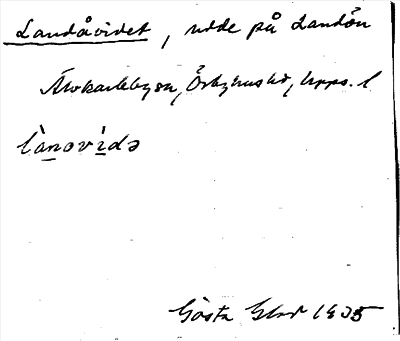 Landåvidet, udde på Landön
Älvkarleby sn, Örbyhus hd, Upps. l
la̱novi̱də
Gösta Glad 1935